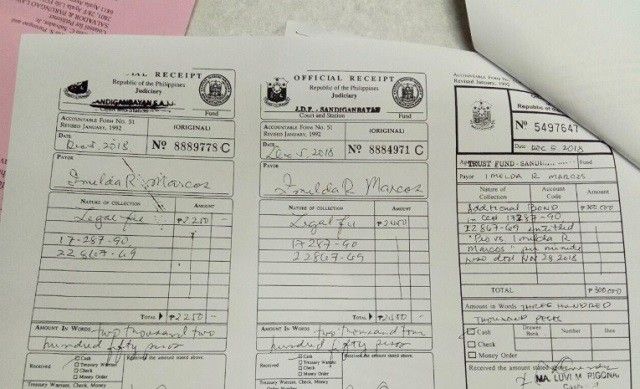 SALVADOR & PARUNGAO LAW
OFFICIAL RECEIPT
Republic of the Philippines
Judiciary
Court and Station
Fund
ACCOUNTABLE FORM NO. 51
REVISED JANUARY, 1992
(ORIGINAL)
DATE
Dec 5, 2018
Nº 8889778 C
PAYOR
Imelda R. Marcos
NATURE OF COLLECTION
AMOUNT
Legal fee ₱2250 -
17-287-90
22867-69
TOTAL ₱2250 -
AMOUNT IN WORDS two thousand two
hundred fifty pesos
Received
Cash
Treasury Warrant
Check
Money Order
the amount stated above.
Treasury Warrant, Check,
OFFICIAL RECEIPT
Republic of the Philippines
Judiciary
J.D.F. - SANDIGANBAYAN
Court and Station
Fund
ACCOUNTABLE FORM NO. 51
REVISED JANUARY, 1992
(ORIGINAL)
DATE
Dec 5, 2018
Nº 8884971 C
PAYOR
Imelda R Marcos
NATURE OF COLLECTION
AMOUNT
Legal fee
17287-90
22867-69
TOTAL
AMOUNT IN WORDS two thousand four
hundred fifty pesos
Received
Cash
Treasury Warrant
Check
Money Order
the amount stated above.
Treasury Warrant, Check,
Revised January, 1992
Republic of
Nº 5497647
Date DEC 5, 2018
TRUST FUND-SANDI
Fund
Payor IMELDA R. MARCOS
Nature of Collection
Account Code
Amount
Additional BOND ₱300,000
22867-69 entitled
"Pp vs. Imelda R
Marcos" per minute
reso dtd NOV 28 2018
TOTAL ₱300,000
Amount in Words THREE HUNDRED
THOUSAND PESOS
Cash
Check
Money Order
Drawee Bank
Number
Date
Received the amount stated above
MA. LUVI M.